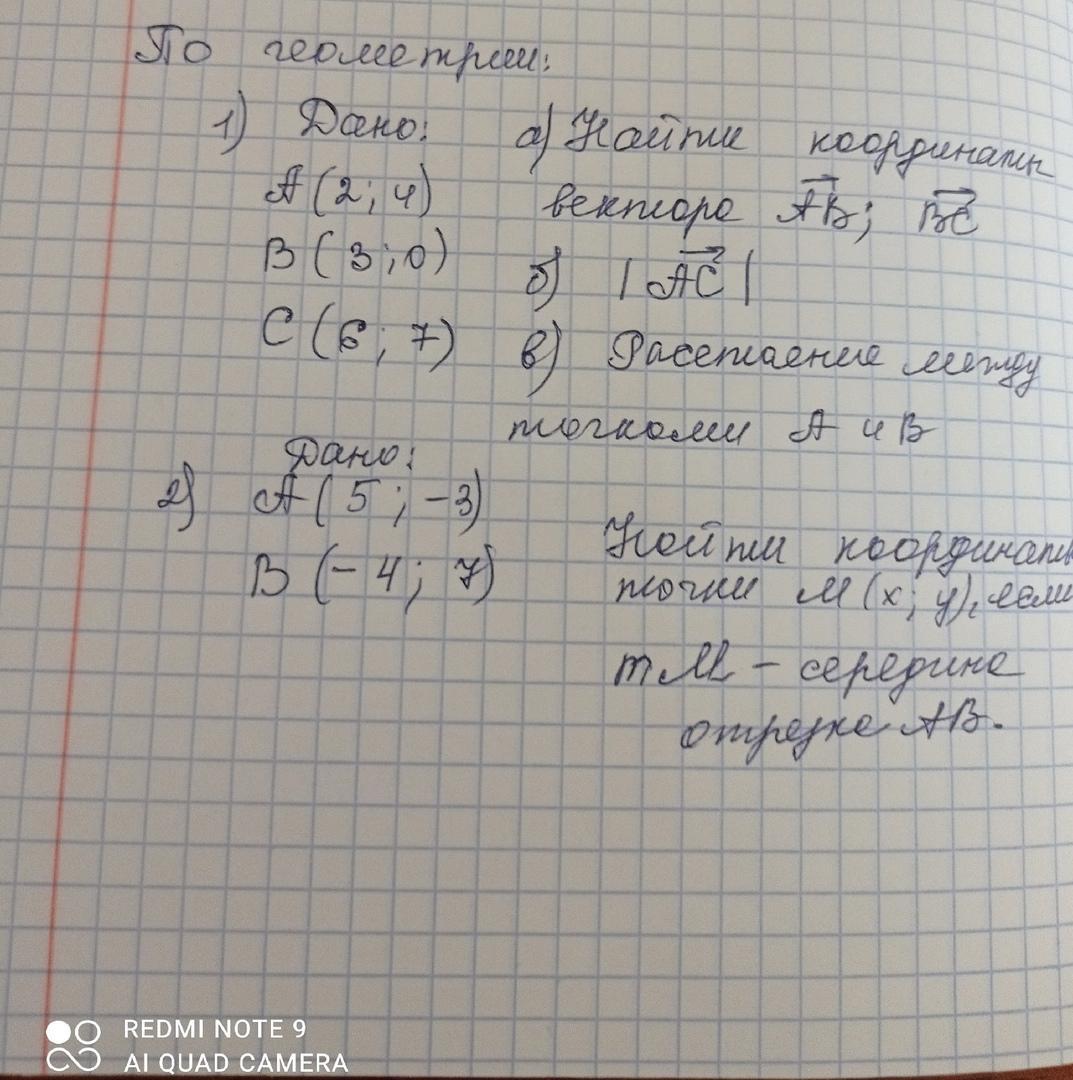 По геометрии:
1) Дано: а) Найти координаты
A(2; 4) вектора AB; BC
B(3; 0) б) |AC|
C(6; 7) в) Расстаение между
точками A и B
Дано:
2) A(5; -3)
Найти координаты
B(-4; 7) точки M(x; y), если
т M - середина
отрезка AB.
REDMI NOTE 9
AI QUAD CAMERA